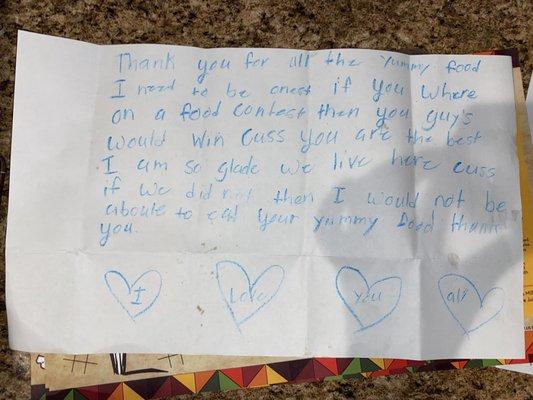 Thank you for all the yummy food
I need to be onest if you where
on a food contest then you guy's
would win cuss you are the best
I am so glade we live here cuss
if we did not then I would not be
aboule to eat your yummy food thank
you.
I Love you all